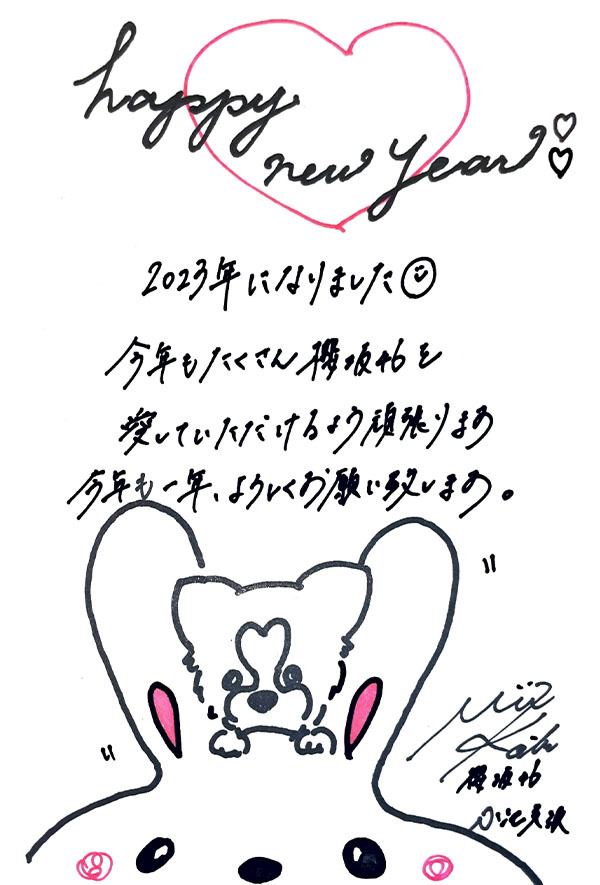 happy
new year♡♡
2023年になりました☺
今年もたくさん櫻坂46を
愛していただけるよう頑張ります
今年も一年、よろしくお願い致します。
櫻坂46
小池美波